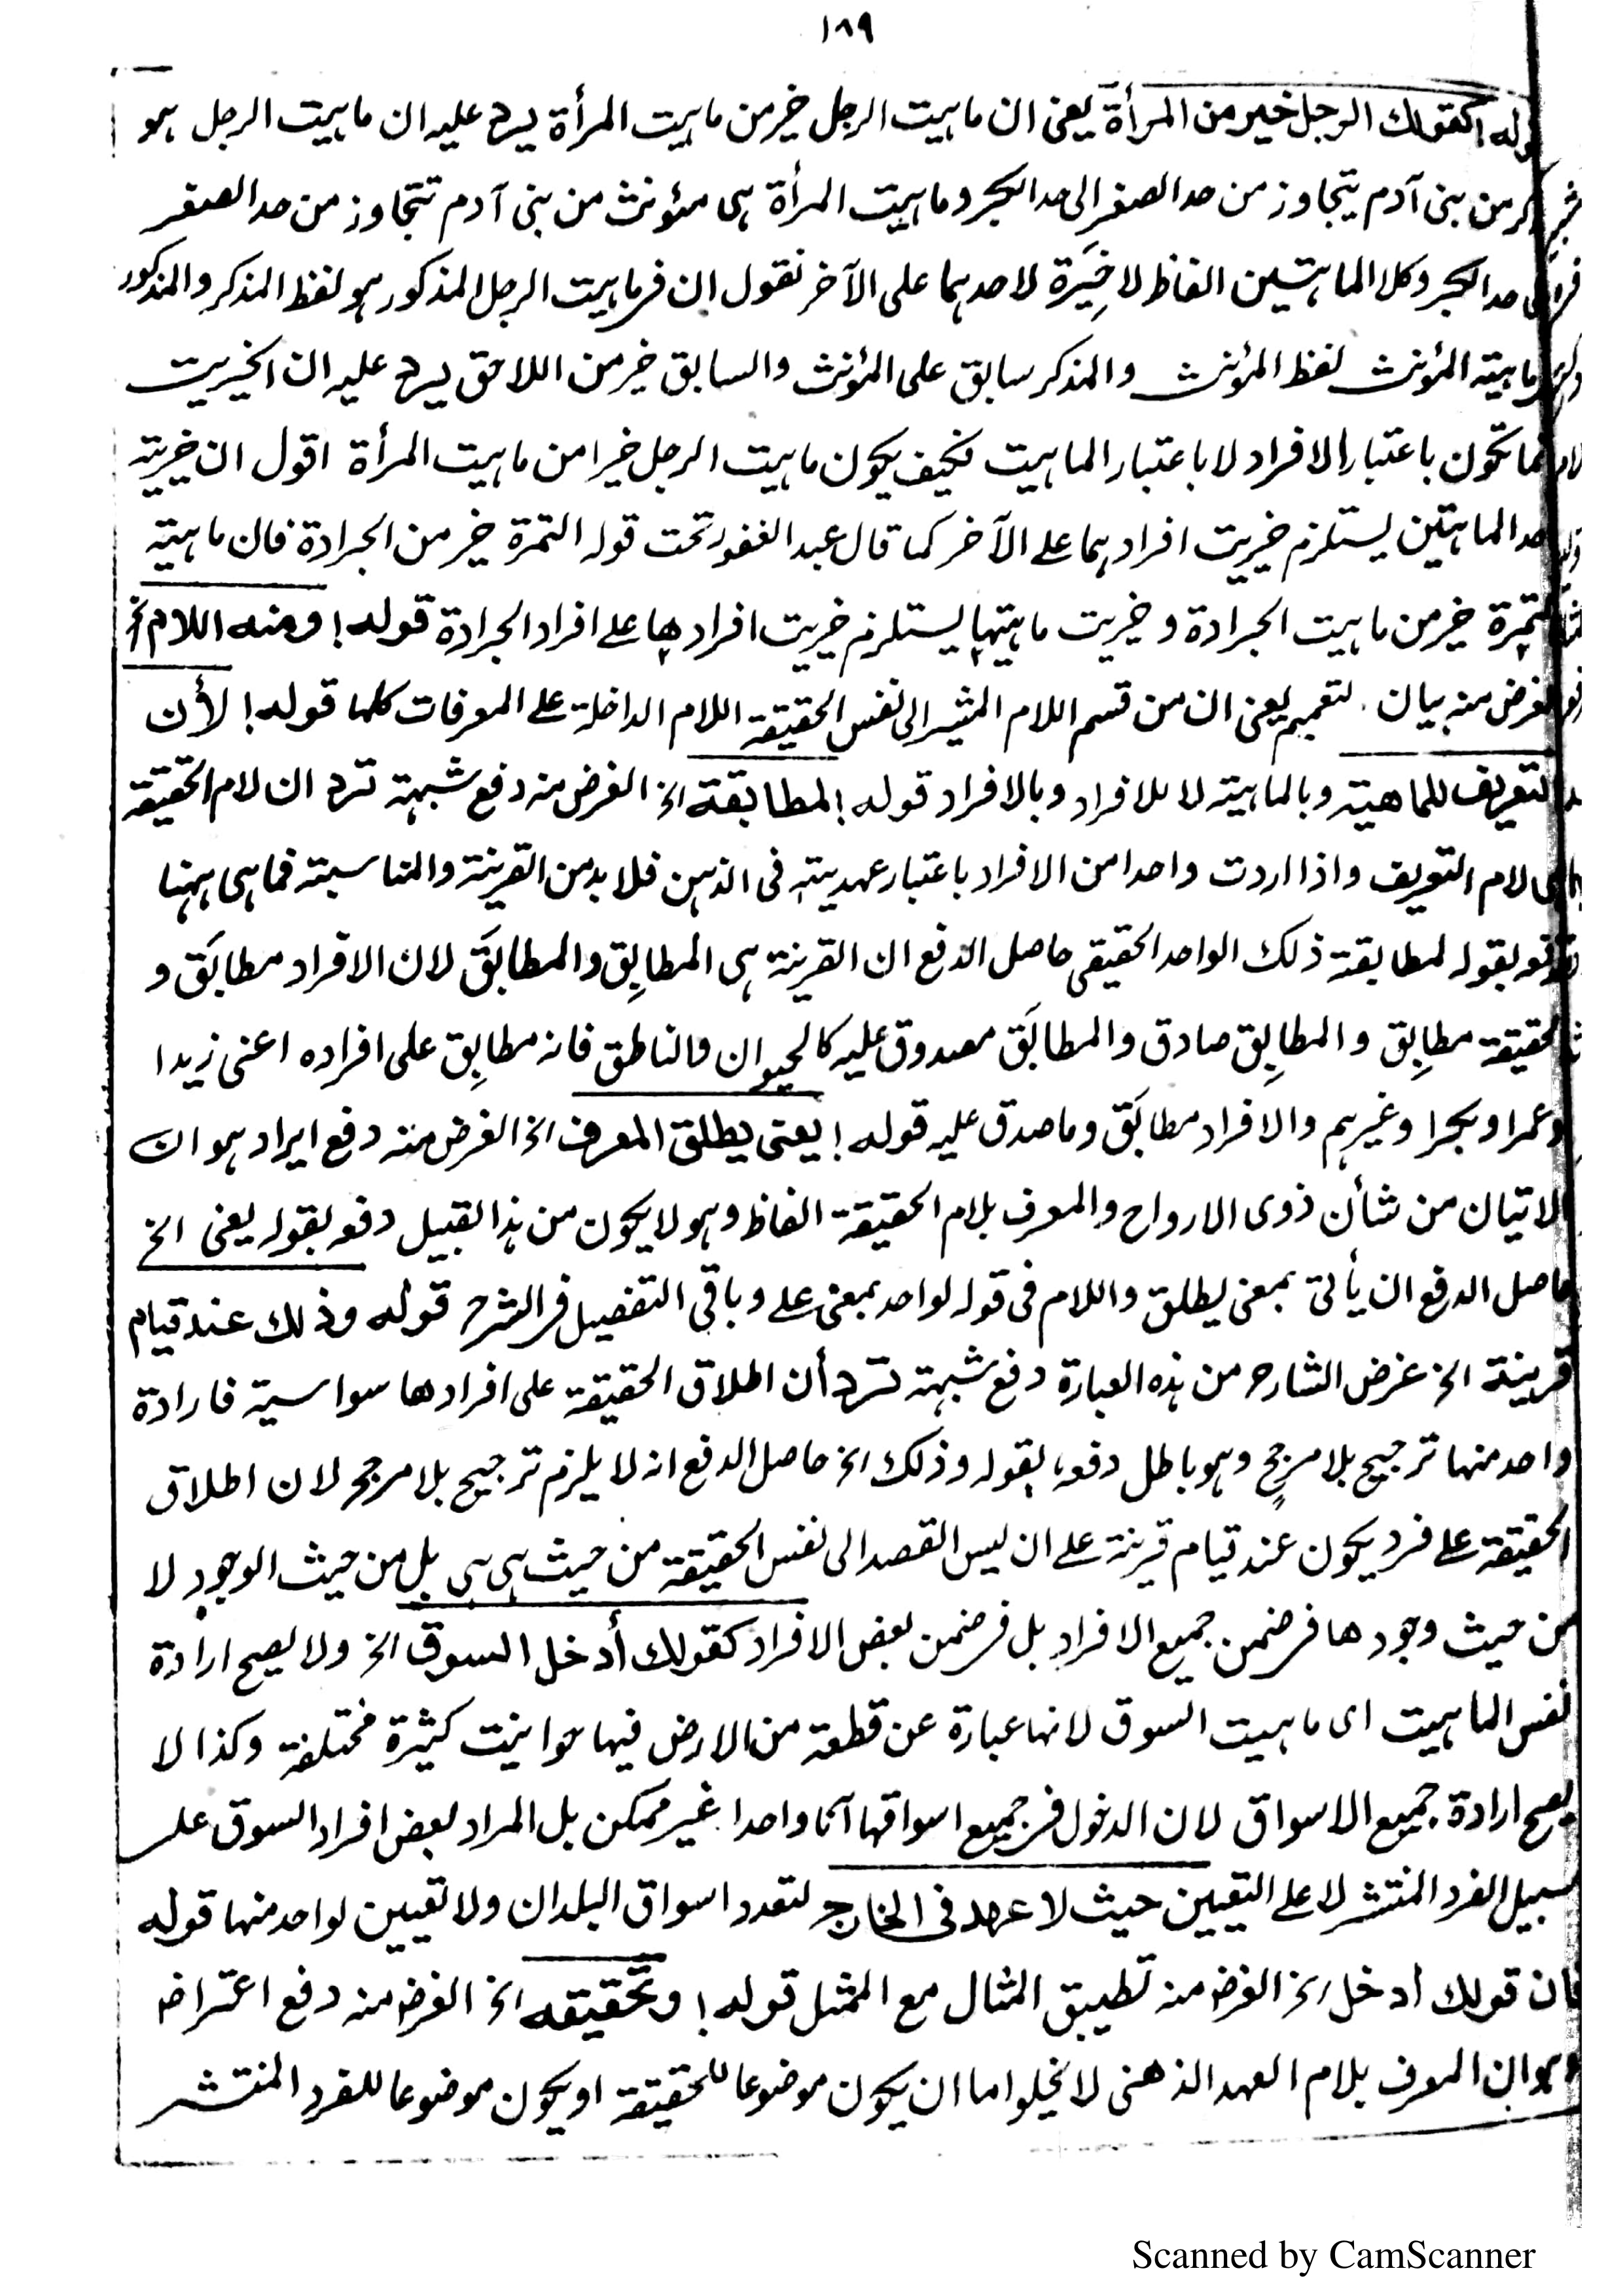 ١٨٩
قوله كقولك الرجل خير من المرأة يعنى ان ماہيت الرجل خير من ماہيت المرأة يرد عليه ان ماہيت الرجل ہو
ذكر من بنى آدم يتجاوز من حد الصغر الى حد الكبر وماہيت المرأة ہى مئونث من بنى آدم تتجاوز من حد الصغر
الى حد الكبر وكلا الماہيتين الفاظ لا خِيَرة لاحدہما على الآخر نقول ان فى ماہيت الرجل المذكور ہو لفظ المذكر والمذكور
ماہيته المؤنث لفظ المؤنث والمذكر سابق على المؤنث والسابق خير من اللاحق يرد عليه ان الخيريت
انما تكون باعتبار الافراد لا باعتبار الماہيت فكيف يكون ماہيت الرجل خيرا من ماہيت المرأة اقول ان خيرية
احد الماہتين يستلزم خيريت افرادہما على الآخر كما قال عبد الغفور تحت قوله التمرة خير من الجرادة فان ماہية
التمرة خير من ماہيت الجرادة وخيريت ماہيتہا يستلزم خيريت افرادہا على افراد الجرادة قوله! ومنه اللام الخ
الغرض منه بيان لتعميم يعنى ان من قسم اللام المشير الى نفس الحقيقة اللام الداخلة على المعرفات كلها قوله! لأن
التعريف للماهية وبالماہية لا للافراد وبالافراد قوله! لمطابقة الخ الغرض منه دفع شبهة ترد ان لام الحقيقة
ہى لام التعريف واذا اردت واحدا من الافراد باعتبار عهديته فى الذہن فلا بد من القرينة والمناسبة فما ہى ہهنا
دفعه بقوله لمطابقة ذلك الواحد الحقيقى حاصل الدفع ان القرينة ہى المطابِق والمطابَق لان الافراد مطابَق و
الحقيقة مطابِق والمطابِق صادق والمطابَق مصدوق عليه كالحيوان والناطق فانه مطابِق على افراده اعنى زيدا
وعمرا وبكرا وغيرہم والافراد مطابَق وما صدق عليه قوله! يعنى يطلق المعرف الخ الغرض منه دفع ايراد ہو ان
الاتيان من شأن ذوى الارواح والمعرف بلام الحقيقة الفاظ وہو لا يكون من ہذا القبيل دفعه بقوله يعنى الخ
حاصل الدفع ان يأتى بمعنى يطلق واللام فى قوله لواحد بمعنى على وباقى التفصيل فى الشرح قوله وذلك عند قيام
قرينة الخ غرض الشارح من ہذه العبارة دفع شبهة ترد أن اطلاق الحقيقة على افرادها سواسية فارادة
واحد منها ترجيح بلا مرجح وہو باطل دفعه بقوله وذلك الخ حاصل الدفع انه لا يلزم ترجيح بلا مرجح لان اطلاق
الحقيقة على فرد يكون عند قيام قرينة على ان ليس القصد الى نفس الحقيقة من حيث ہى ہى بل من حيث الوجود لا
من حيث وجودها فى ضمن جميع الافراد بل فى ضمن بعض الافراد كقولك أدخل السوق الخ ولا يصح ارادة
نفس الماہيت اى ماہيت السوق لانها عبارة عن قطعة من الارض فيها حوانيت كثيرة مختلفة وكذا لا
يصح ارادة جميع الاسواق لان الدخول فى جميع اسواقها آنا واحدا غير ممكن بل المراد بعض افراد السوق على
سبيل الفرد المنتشر لا على التعيين حيث لا عهد فى الخارج لتعدد اسواق البلدان ولا تعيين لواحد منها قوله
فان قولك ادخل الخ الغرض منه تطبيق المثال مع الممثل قوله! وتحقيقه الخ الغرض منه دفع اعتراض
وہو ان المعرف بلام العهد الذهنى لا يخلو اما ان يكون موضوعا للحقيقة او يكون موضوعا للفرد المنتشر
Scanned by CamScanner